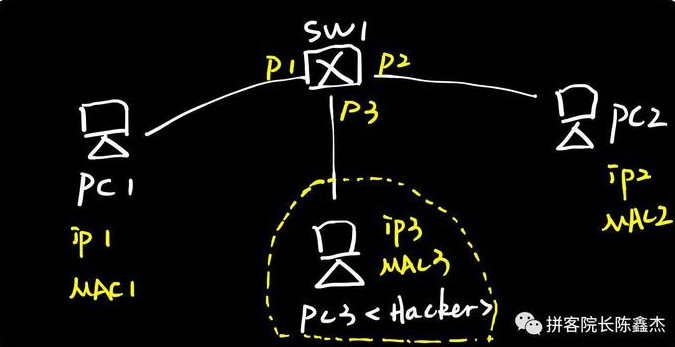 SW1
P1
P2
P3
PC1
ip1
MAC1
PC2
ip2
MAC2
ip3
MAC3
PC3 <Hacker>
拼客院长陈鑫杰